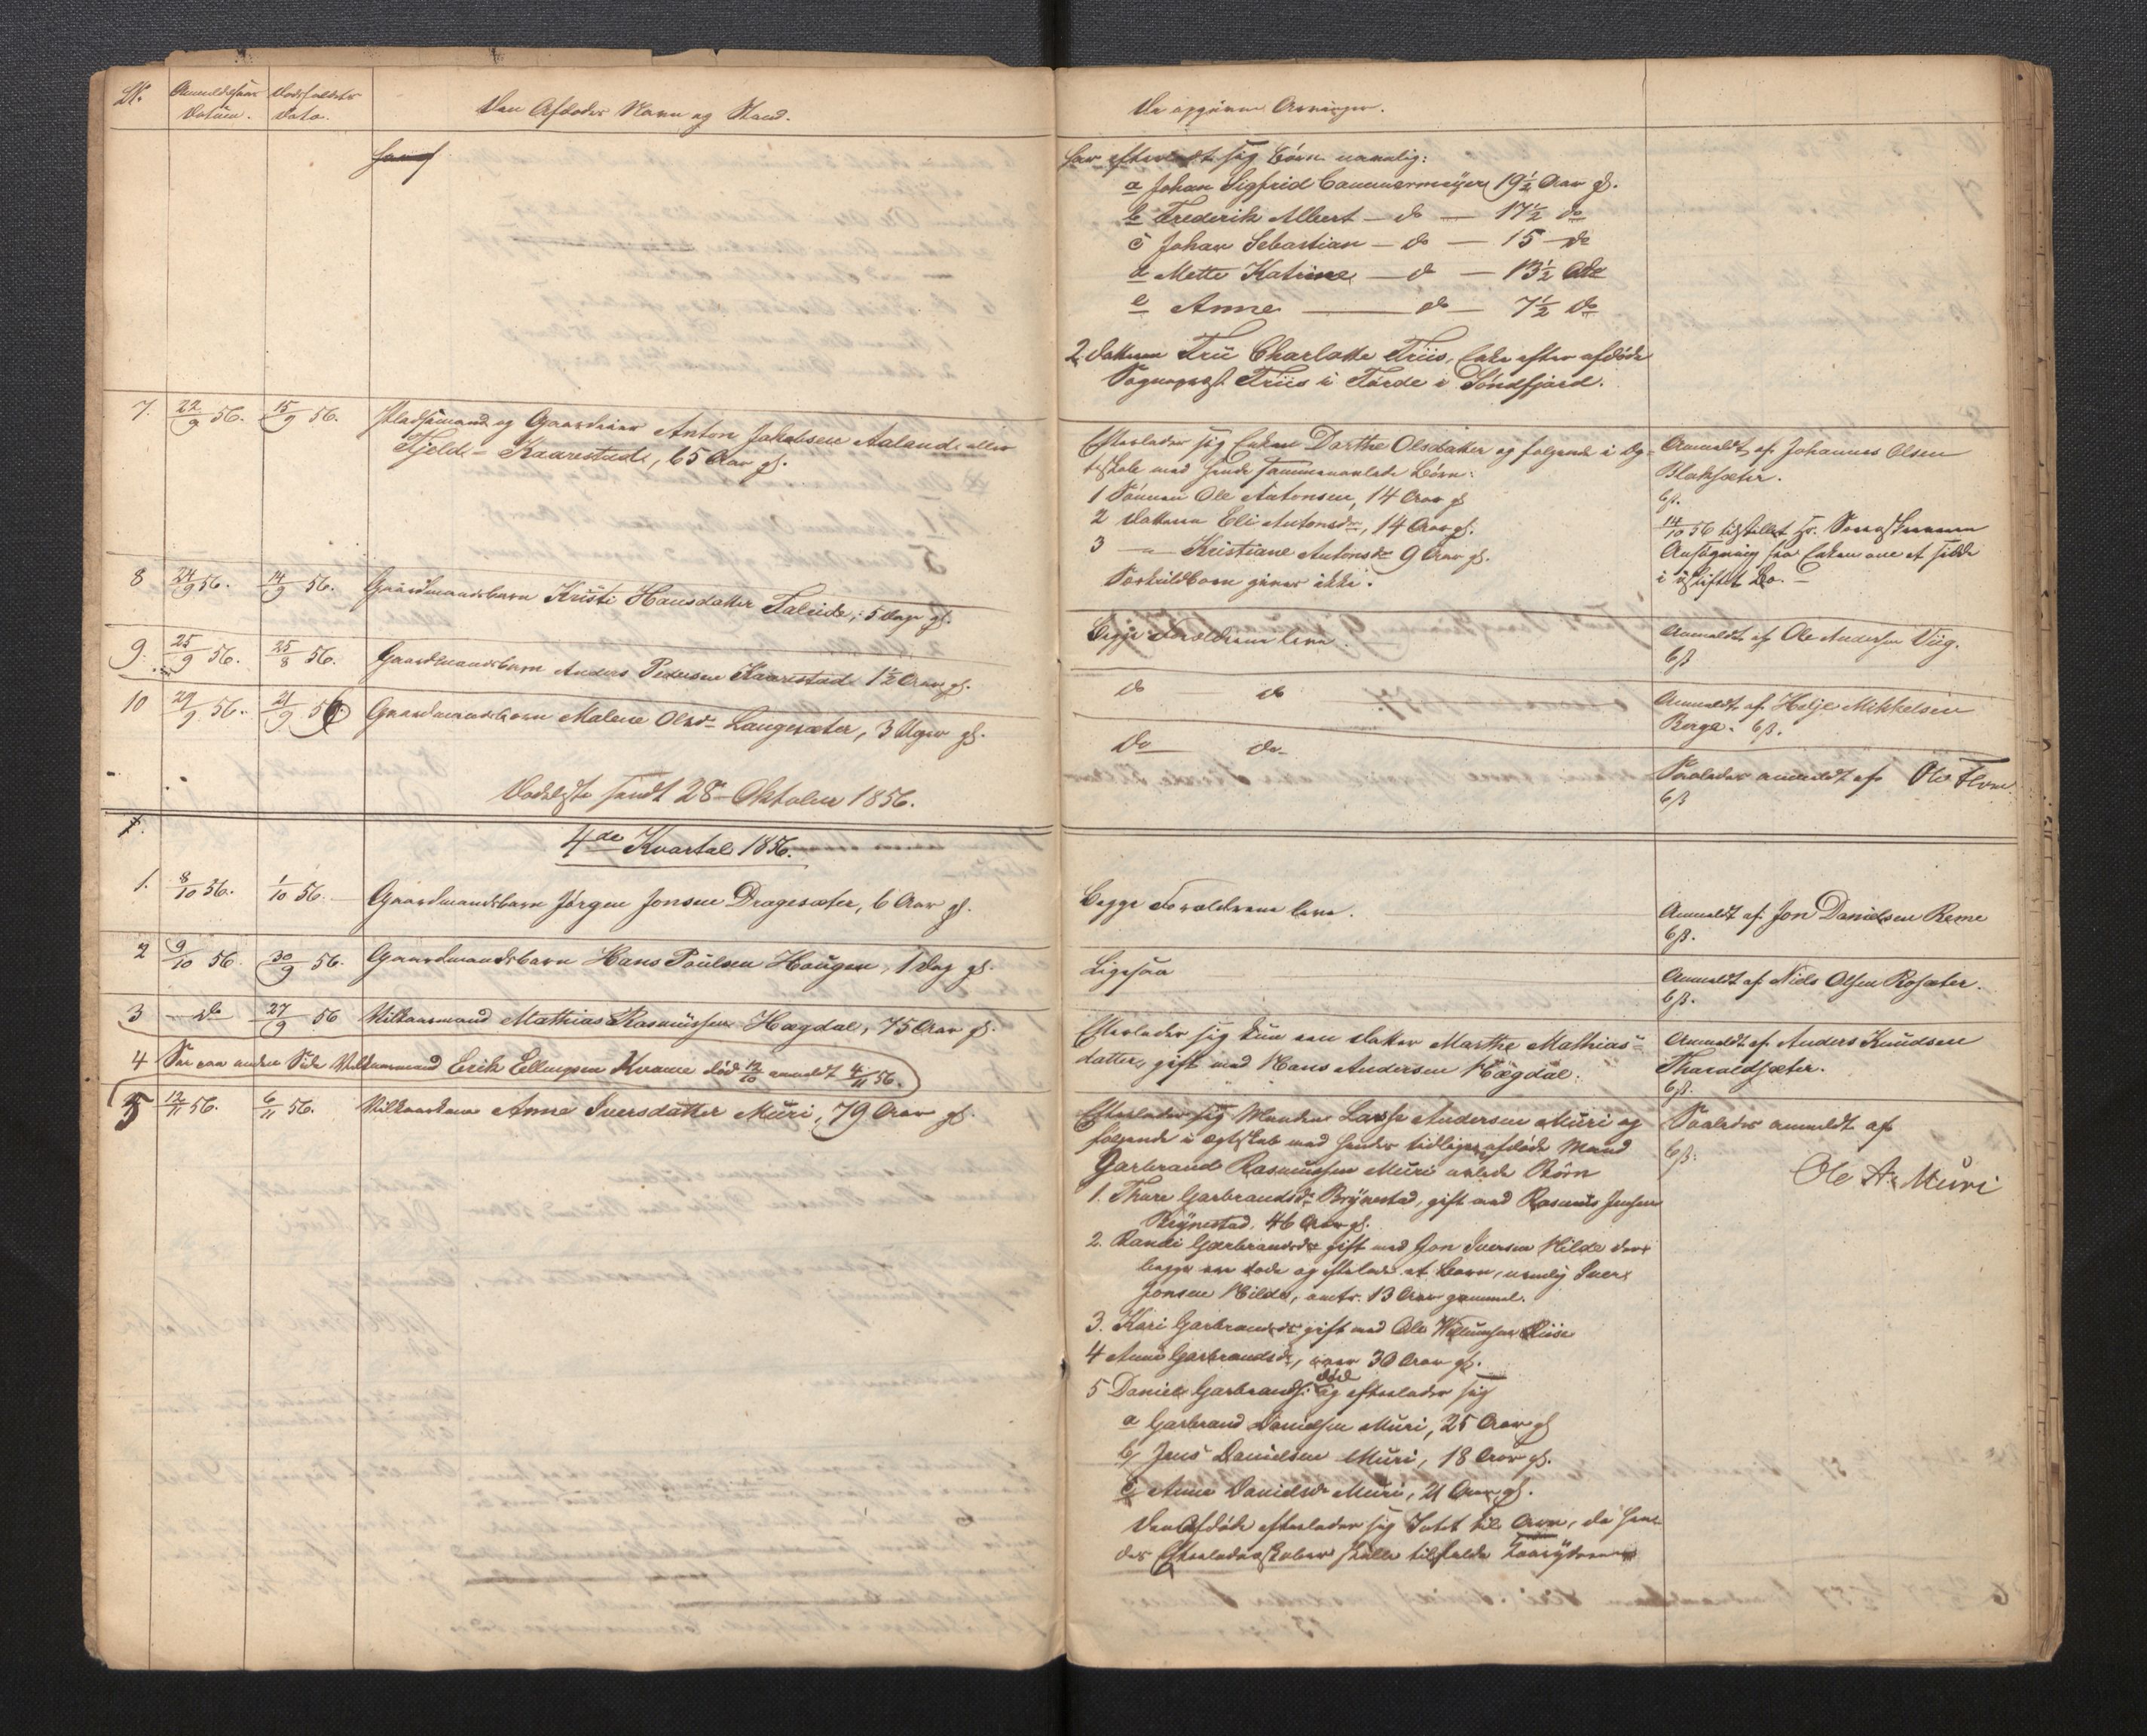 No.
Anmeldelsens Datum.
Dødsfaldets Dato.
Den Afdødes Navn og Stand.
De opgivne Arvinger.
har efterladt sig Børn nemlig:
a Johan Sigfrid Cammermeÿer 19½ Aar gl.
b Frederik Albert — do — 17½ do
c Johan Sebastian — do — 15 — do
d Mette Katrine — do — 13½ do
e Anne — do — 7½ do
2. Datteren Frue Charlotte Friis, Enke efter afdøde
Sognepræst Friis i Førde i Søndfjord.
7. 22/9 56. 15/9 56. Pladsemand og Gaardmand Anton Jakobsen Aaland eller
Fjeld-Kaarestad, 65 Aar gl.
Efterlader sig Enken Dorthe Olsdatter og følgende i Æg-
teskab med hende sammenavlede Børn:
1 Sønnen Ole Antonsen, 14 Aar gl
2 Datteren Eli Antonsdr, 14 Aar gl.
3 — " — Kristiane Antonsdr 9 Aar gl.
Særkuldbørn gives ikke.
Anmeldt af Johannes Olsen
Blaksæter.
6ß.
14/10 56 tilstillet Hr. Sorenskriveren
Ansøgning fra Enken om at sidde
i uskiftet Bo. —
8 24/9 56. 14/9 56. Gaardmandsbarn Kristi Hansdatter Taleide, 5 Dage gl.
Begge Forældrene leve.
Anmeldt af Ole Andersen Viig.
6ß
9. 25/9 56. 25/8 56. Gaardmandsbarn Anders Pedersen Kaarestad 1½ Aar gl.
do do
Anmeldt af Helje Mikkelsen
Berge. 6ß.
10 29/9 56. 21/9 56. Gaardmandsbarn Malene Olsdr Langesæter, 3 Uger gl.
Do do
Saaledes anmeldt af Ole Flore
6ß
Dødsliste sendt 28de Oktober 1856.
4de Kvartal 1856.
1. 8/10 56. 1/10 56. — Gaardmandsbarn Jørgen Jonsen Dragesæter, 6 Aar gl.
Begge Forældrene leve.
Anmeldt af Jon Danielsen Reme
6ß.
2 9/10 56. 30/9 56. Gaardmandsbarn Hans Poulsen Haugen, 1 Dag gl.
Ligesaa
Anmeldt af Niels Olsen Rosæter.
6ß.
3 — do 27/9 56 Vilkaarsmand Mathias Rasmussen Hægdal, 75 Aar gl.
Efterlader sig kun een Datter Marthe Mathias-
datter, gift med Hans Andersen Hægdal.
Anmeldt af Anders Knudsen
Tharaldsæter.
6ß.
4 See paa anden Side Vilkaarsmand Erik Ellingsen Kvame død 12/10 anmeldt 4/11 56.
5 12/11 56. 6/11 56. Vilkaarskone Anne Iversdatter Muri, 79 Aar gl.
Efterlader sig Manden Lasse Andersen Muri og
følgende i Ægteskab med hendes tidligere afdøde Mand
Garbrand Rasmussen Muri avlede Børn
1. Thure Garbrandsdr Brÿnestad, gift med Rasmus Jensen
Brÿnestad, 46 Aar gl.
2. Randi Garbrandsdr gift med Jon Iversen Hilde der
begge ere døde og efterlade et Barn, nemlig Iver
Jonsen Hilde, omtr. 13 Aar gammel.
3. Kari Garbrandsdr gift med Ole Willumsen Riise
4 Anne Garbrandsdr, over 30 Aar gl.
5 Daniel Garbrands. død og efterlader sig
a Garbrand Danielsen Muri, 25 Aar gl
b Jens Danielsen Muri, 18 Aar gl.
c Anne Danielsdr Muri, 21 Aar gl.
Den Afdøde efterlader sig Intet til Arv, da hen-
des Efterladenskaber skulle tilfalde
Saaledes anmeldt af
6ß.
Ole A. Muri